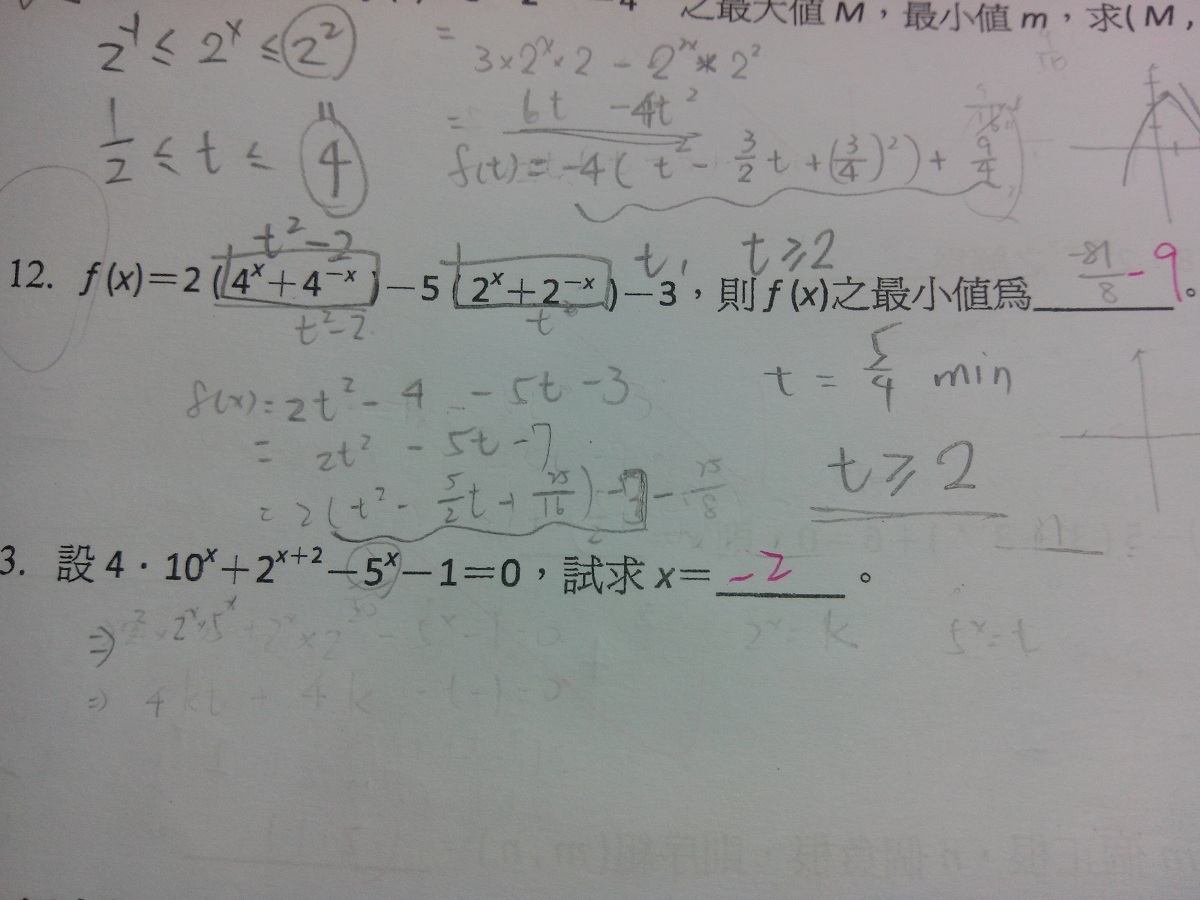 之最大值 M，最小值 m，求(M,
2⁻¹ ≤ 2ˣ ≤ 2²
= 3×2ˣ×2 − 2²ˣ×2²
1/2 ≤ t ≤ 4
= 6t −4t²
f(t) = −4( t² − 3/2 t + (3/4)²) + 9/4
t²−2 t, t≥2
12. f(x)=2(4ˣ+4⁻ˣ)−5(2ˣ+2⁻ˣ)−3，則 f(x)之最小值為 −81/8 −9。
t²−2 t
f(x) = 2t² − 4 − 5t − 3
t = 5/4 min
= 2t² − 5t − 7
t ≥ 2
= 2(t² − 5/2 t + 25/16) − 7 − 25/8
3. 設 4．10ˣ+2ˣ⁺²−5ˣ−1=0，試求 x= −2 。
⇒ 2²×2ˣ×5ˣ + 2ˣ×2² − 5ˣ − 1 = 0
2ˣ = k 5ˣ = t
⇒ 4kt + 4k − t − 1 = 0